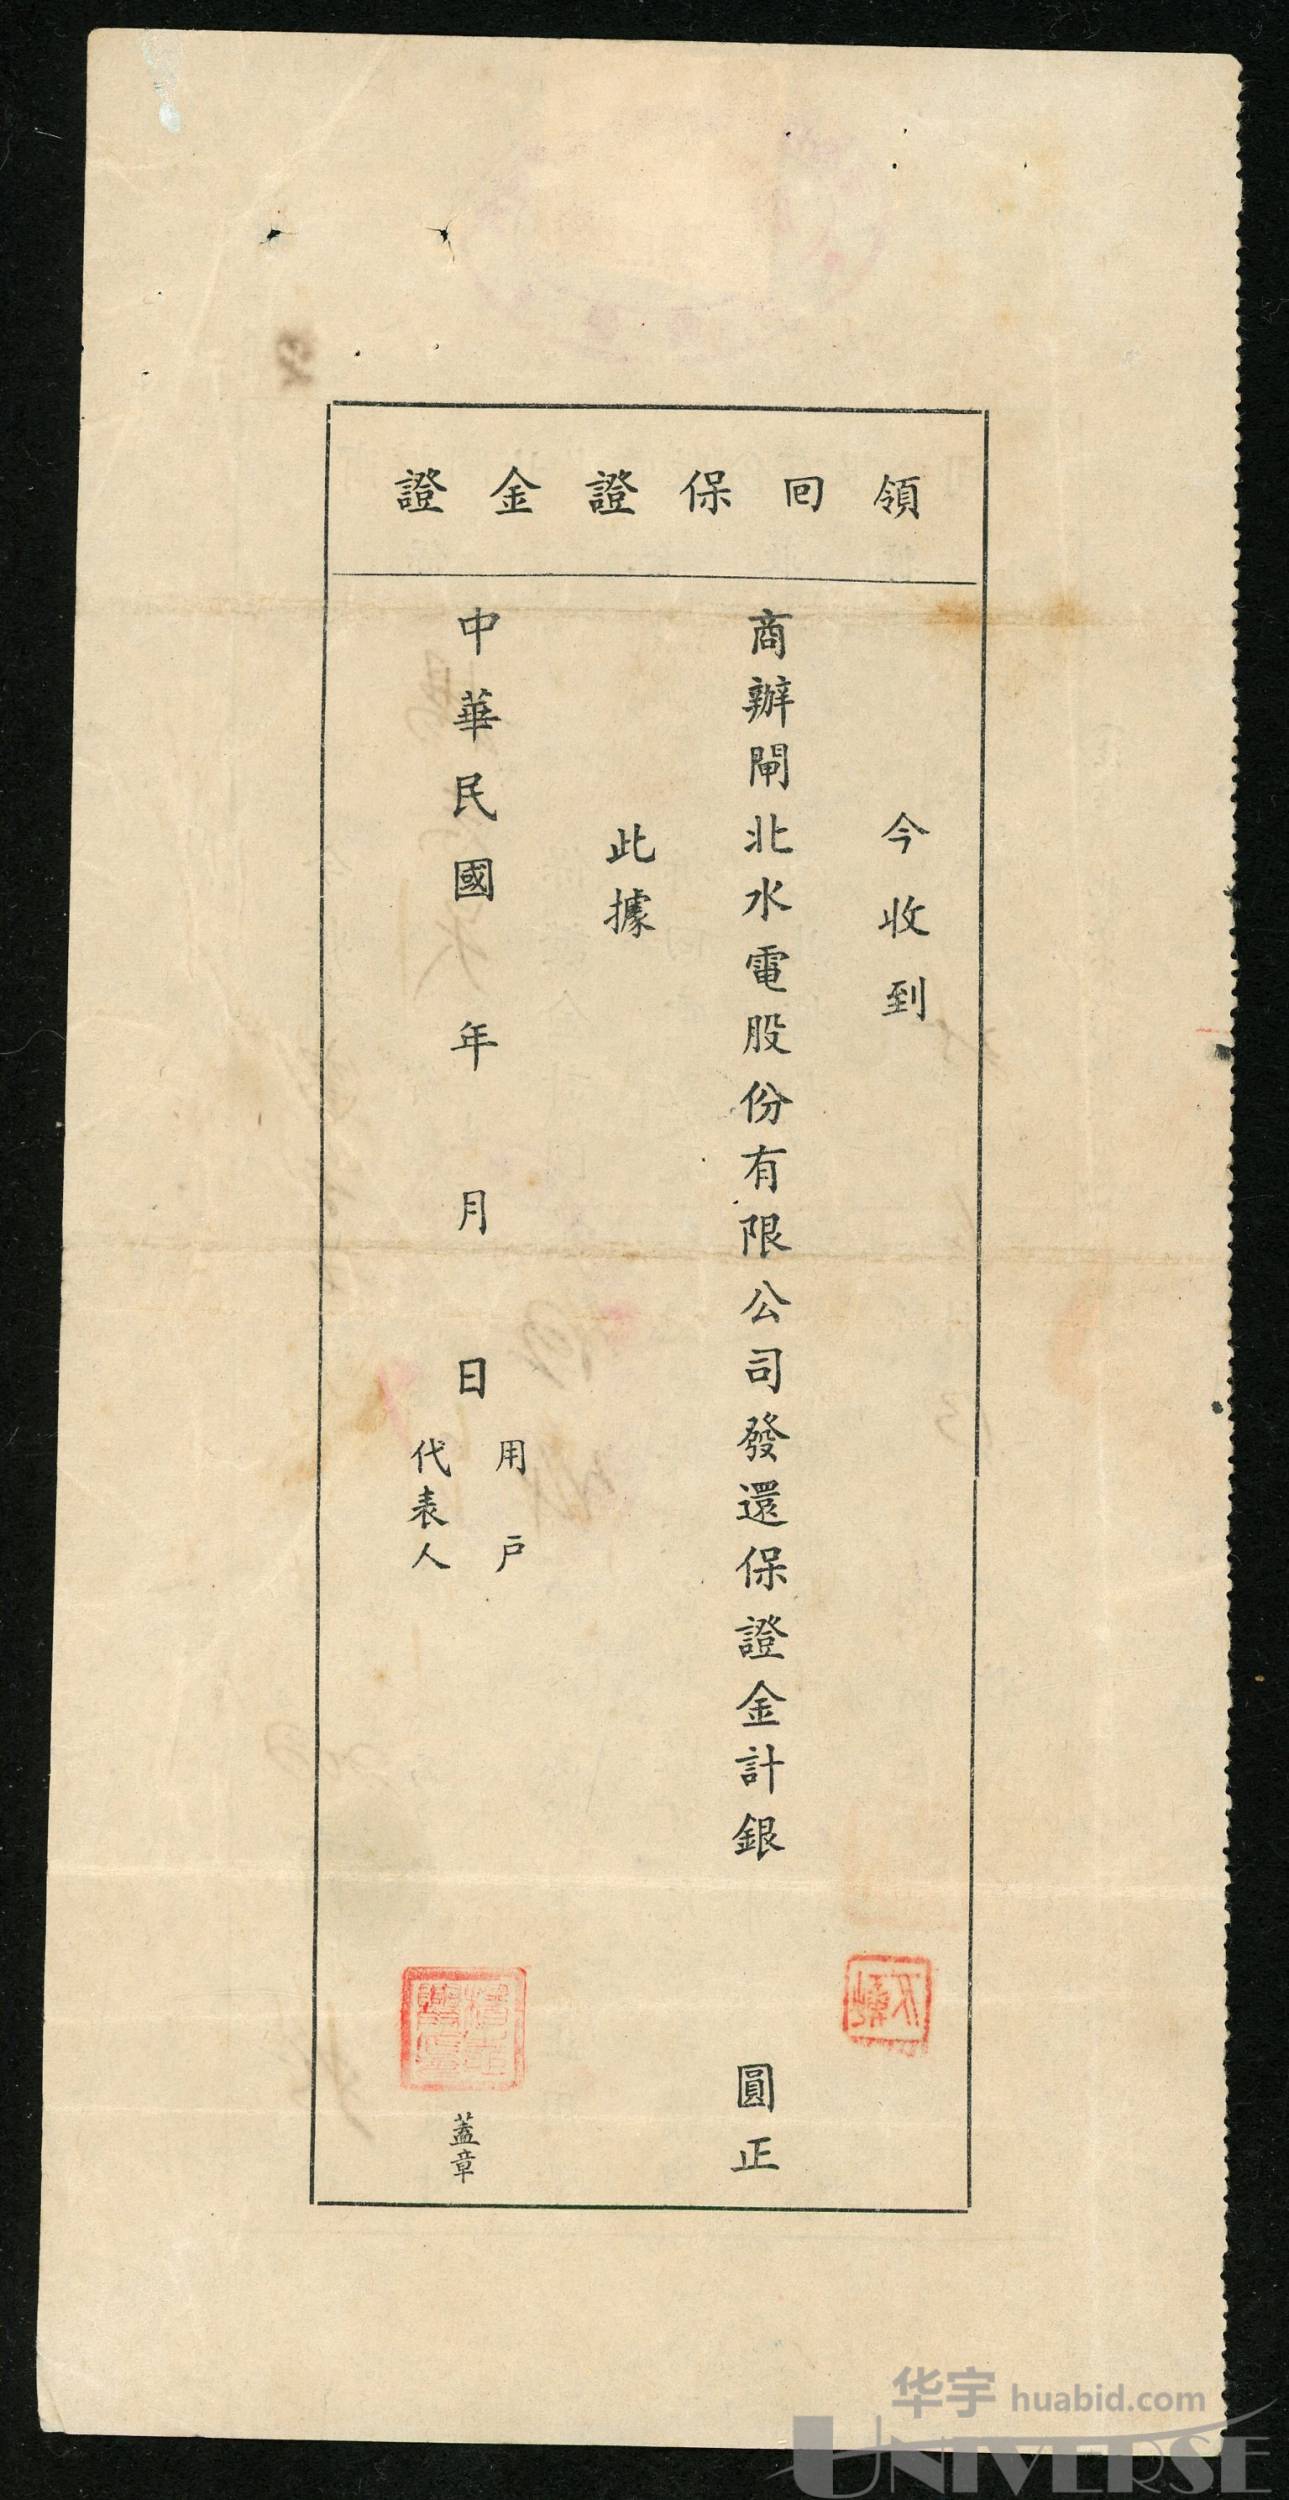 領回保證金證
今收到
商辦閘北水電股份有限公司發還保證金計銀 圓正
此據
中華民國 年 月 日
用戶
代表人
蓋章
华宇 huabid.com
UNIVERSE